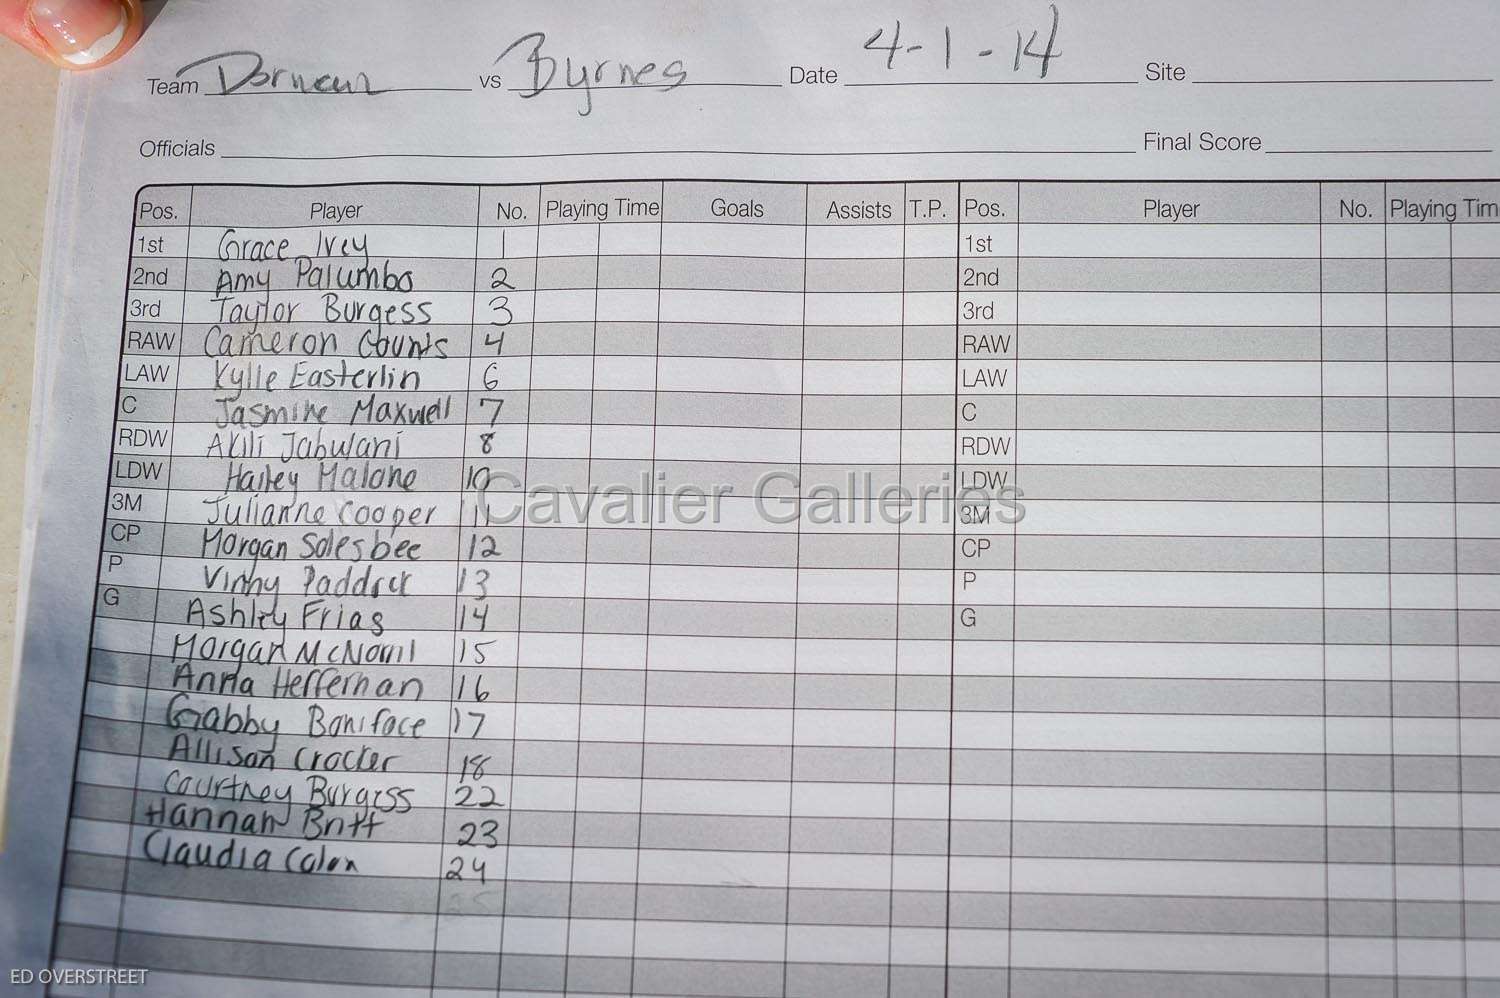 Team Dorman vs Byrnes Date 4-1-14 Site
Officials Final Score
Pos. Player No. Playing Time Goals Assists T.P. Pos. Player No. Playing Tim
1st Grace Ivey 1 1st
2nd Amy Palumbo 2 2nd
3rd Taylor Burgess 3 3rd
RAW Cameron Counts 4 RAW
LAW Kylie Easterlin 6 LAW
C Jasmine Maxwell 7 C
RDW Akili Jabulani 8 RDW
LDW Hailey Malone 10 LDW
Cavalier Galleries
3M Julianne Cooper 11 3M
CP Morgan Solesbee 12 CP
P Vinny Paddock 13 P
G Ashley Frias 14 G
Morgan 15
Anna Heffernan 16
Gabby Boniface 17
Allison Crocker 18
Courtney Burgess 22
Hannah Britt 23
Claudia Colon 24
25
ED OVERSTREET